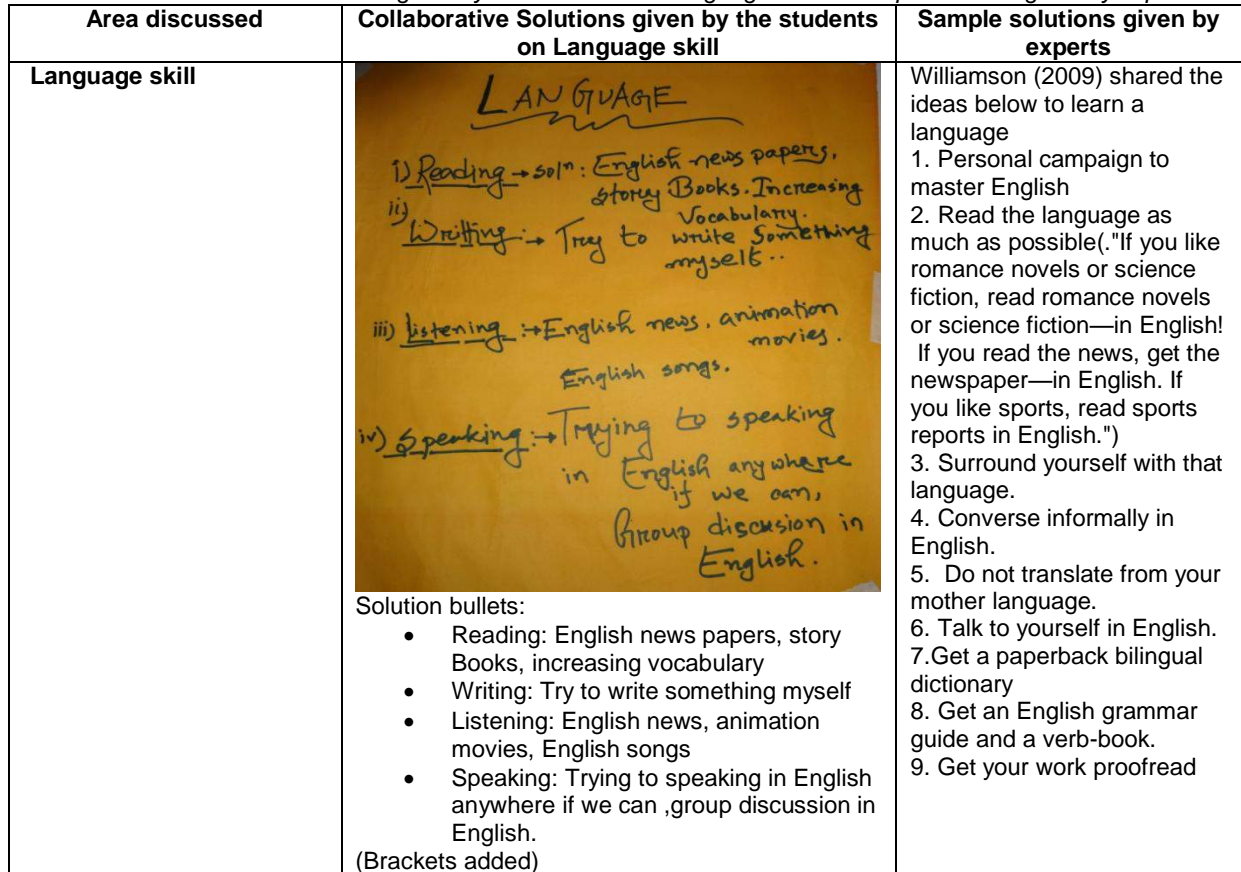 Area discussed
Collaborative Solutions given by the students
on Language skill
Sample solutions given by
experts
Language skill
LANGUAGE
i) Reading → solⁿ: English news papers,
storey Books. Increasing
Vocabulary.
ii)
Writting :→ Trey to write Something
myself..
iii) Listening :→ English news, animation
movies.
English songs.
iv) Speaking :→ Trying to speaking
in English anywhere
if we can,
Group discusion in
English.
Solution bullets:
• Reading: English news papers, story
Books, increasing vocabulary
• Writing: Try to write something myself
• Listening: English news, animation
movies, English songs
• Speaking: Trying to speaking in English
anywhere if we can ,group discussion in
English.
(Brackets added)
Williamson (2009) shared the
ideas below to learn a
language
1. Personal campaign to
master English
2. Read the language as
much as possible(."If you like
romance novels or science
fiction, read romance novels
or science fiction—in English!
If you read the news, get the
newspaper—in English. If
you like sports, read sports
reports in English.")
3. Surround yourself with that
language.
4. Converse informally in
English.
5. Do not translate from your
mother language.
6. Talk to yourself in English.
7.Get a paperback bilingual
dictionary
8. Get an English grammar
guide and a verb-book.
9. Get your work proofread